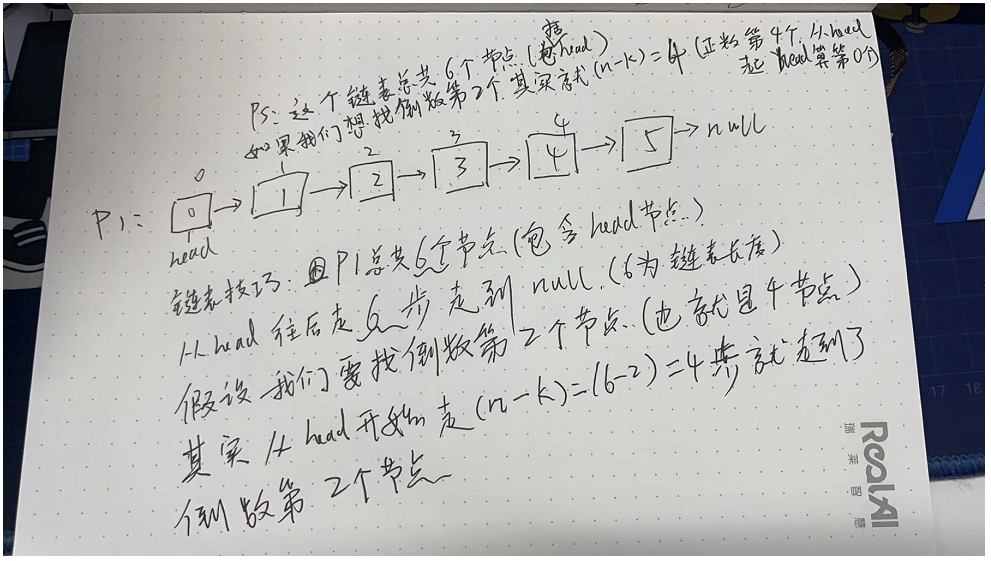 PS: 这个链表总共6个节点(包括head)
如果我们想找倒数第2个,其实就(n-k)=4(正数第4个,从head起,head算第0个)
0 1 2 3 4
P1: 0 → 1 → 2 → 3 → 4 → 5 → null
head
链表技巧: P1总共6个节点(包含head节点)
从head往后走6步走到null.(6为链表长度)
假设我们要找倒数第2个节点(也就是4节点)
其实从head开始走(n-k)=(6-2)=4步就走到了
倒数第2个节点
RealAI
瑞莱智慧
17 18